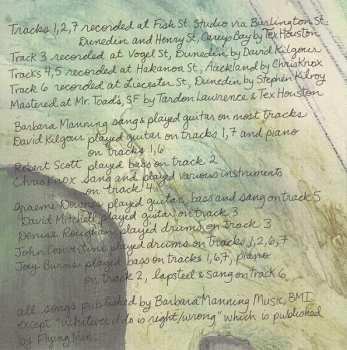 Tracks 1,2,7 recorded at Fish St. Studio via Burlington St.
Dunedin and Henry St, Careys Bay by Tex Houston
Track 3 recorded at Vogel St, Dunedin by David Kilgour
Tracks 4,5 recorded at Hakanoa St, Auckland by Chris Knox
Track 6 recorded at Leicester St, Dunedin by Stephen Kilroy
Mastered at Mr Toad's, SF by Tardon Lawrence & Tex Houston
Barbara Manning sang & played guitar on most tracks
David Kilgour played guitar on tracks 1,7 and piano
on tracks 1,6
Robert Scott played bass on track 2
Chris Knox sang and played various instruments
on track 4
Graeme Downes played guitar, bass and sang on track 5
David Mitchell played guitar on track 3
Denise Roughan played drums on track 3
John Convertino played drums on tracks 1,2,6,7
Joey Burns played bass on tracks 1,6,7, piano
on track 2, lapsteel & sang on track 6
all songs published by Barbara Manning Music, BMI
except "Whatever I do is right/wrong" which is published
by Flying Nun